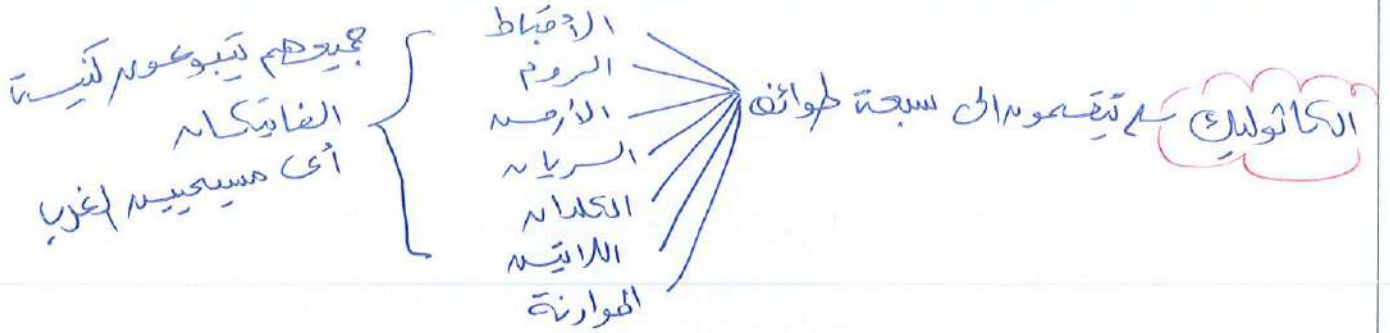 الكاثوليك ← ينقسمون الى سبعة طوائف
الاقباط
الروم
الأرمن
السريان
الكلدان
اللاتين
الموارنة
جميعهم يتبعون كنيسة
الفاتيكان
أى مسيحيين الغرب